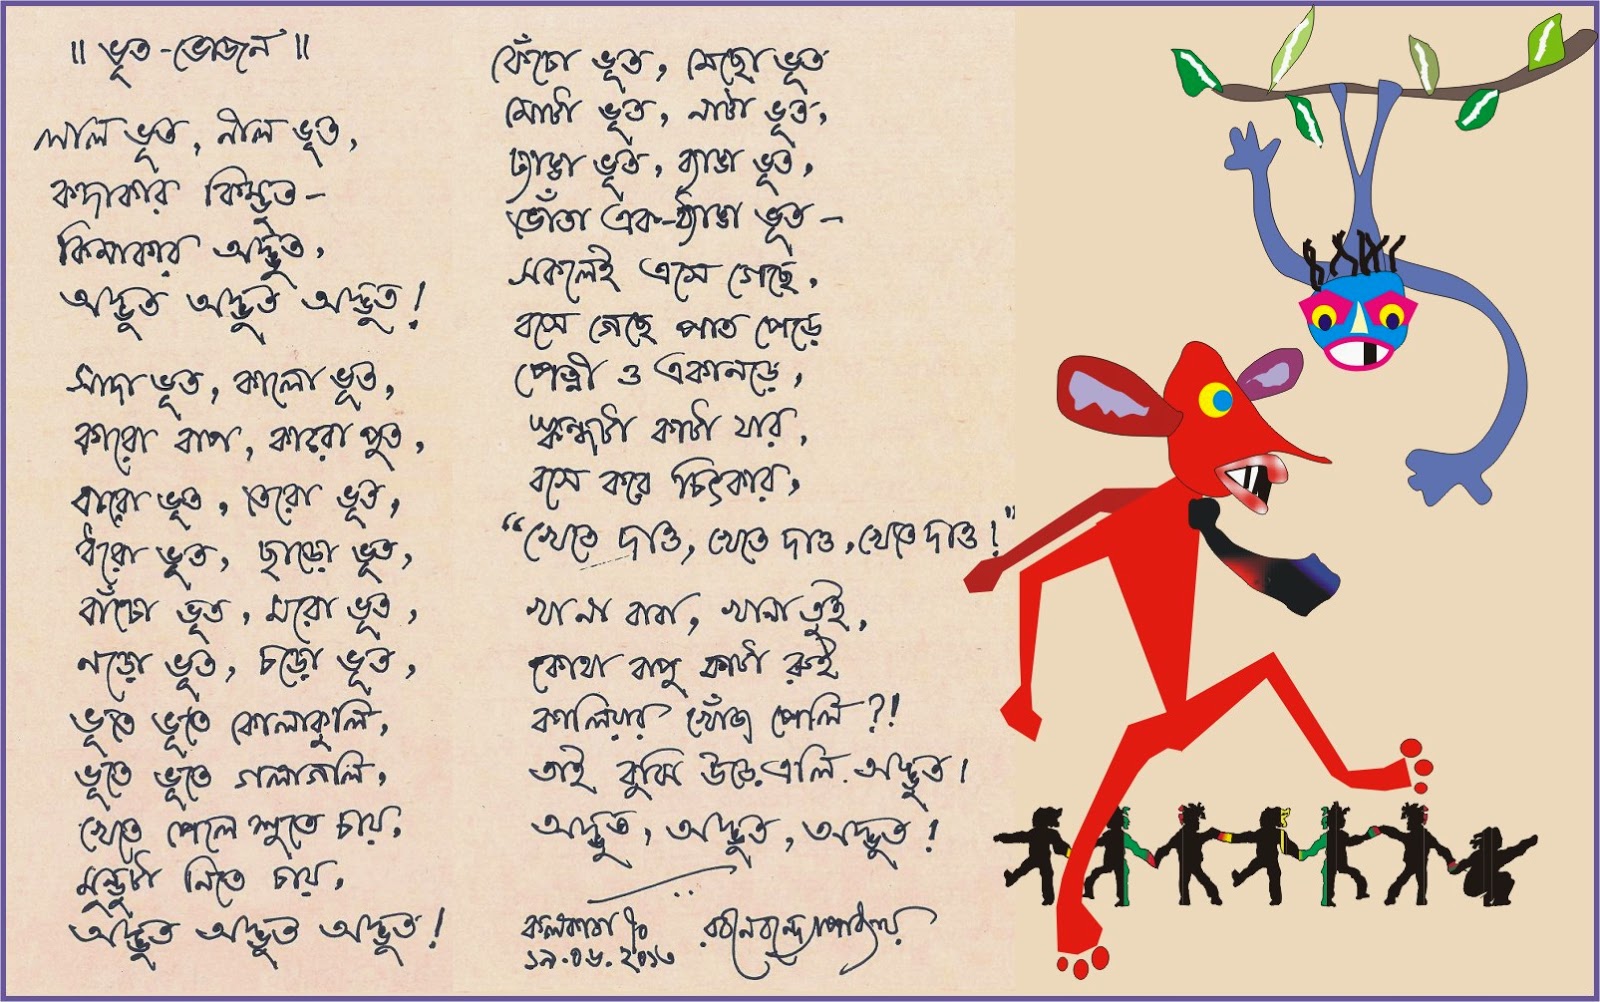 ॥ ভূত-ভোজন ॥
লাল ভূত, নীল ভূত,
কদাকার কিম্ভূত-
কিমাকার অদ্ভুত,
অদ্ভুত অদ্ভুত অদ্ভুত!
সাদা ভূত, কালো ভূত,
কারো বাপ, কারো পুত,
বারো ভূত, তেরো ভূত,
ধরো ভূত, ছাড়ো ভূত,
বাঁটো ভূত, মরো ভূত,
নড়ো ভূত, চড়ো ভূত,
ভূতে ভূতে কোলাকুলি,
ভূতে ভূতে গলাগলি,
খেতে পেলে শুতে চায়,
মুন্ডুটা নিতে চায়,
অদ্ভুত অদ্ভুত অদ্ভুত!
ফেঁটো ভূত, মেছো ভূত
মোটা ভূত, নাটা ভূত,
ঢ্যাঙা ভূত, ব্যাঙা ভূত,
ভোঁতা এক-ঠ্যাঙা ভূত-
সকলেই এসে গেছে,
বসে গেছে পাত পেড়ে
পেত্নী ও একানড়ে,
স্কন্ধটা কাটা যার,
বসে করে চিৎকার,
“খেতে দাও, খেতে দাও, খেতে দাও!”
খা না বাবা, খানা তুই,
কোথা বাপু কাটা রুই
কালিয়ার খোঁজ পেলি?!
তাই বুঝি উড়ে এলি. অদ্ভুত!
অদ্ভুত, অদ্ভুত, অদ্ভুত!
কলকাতা
১৯.০৬.২০১৩